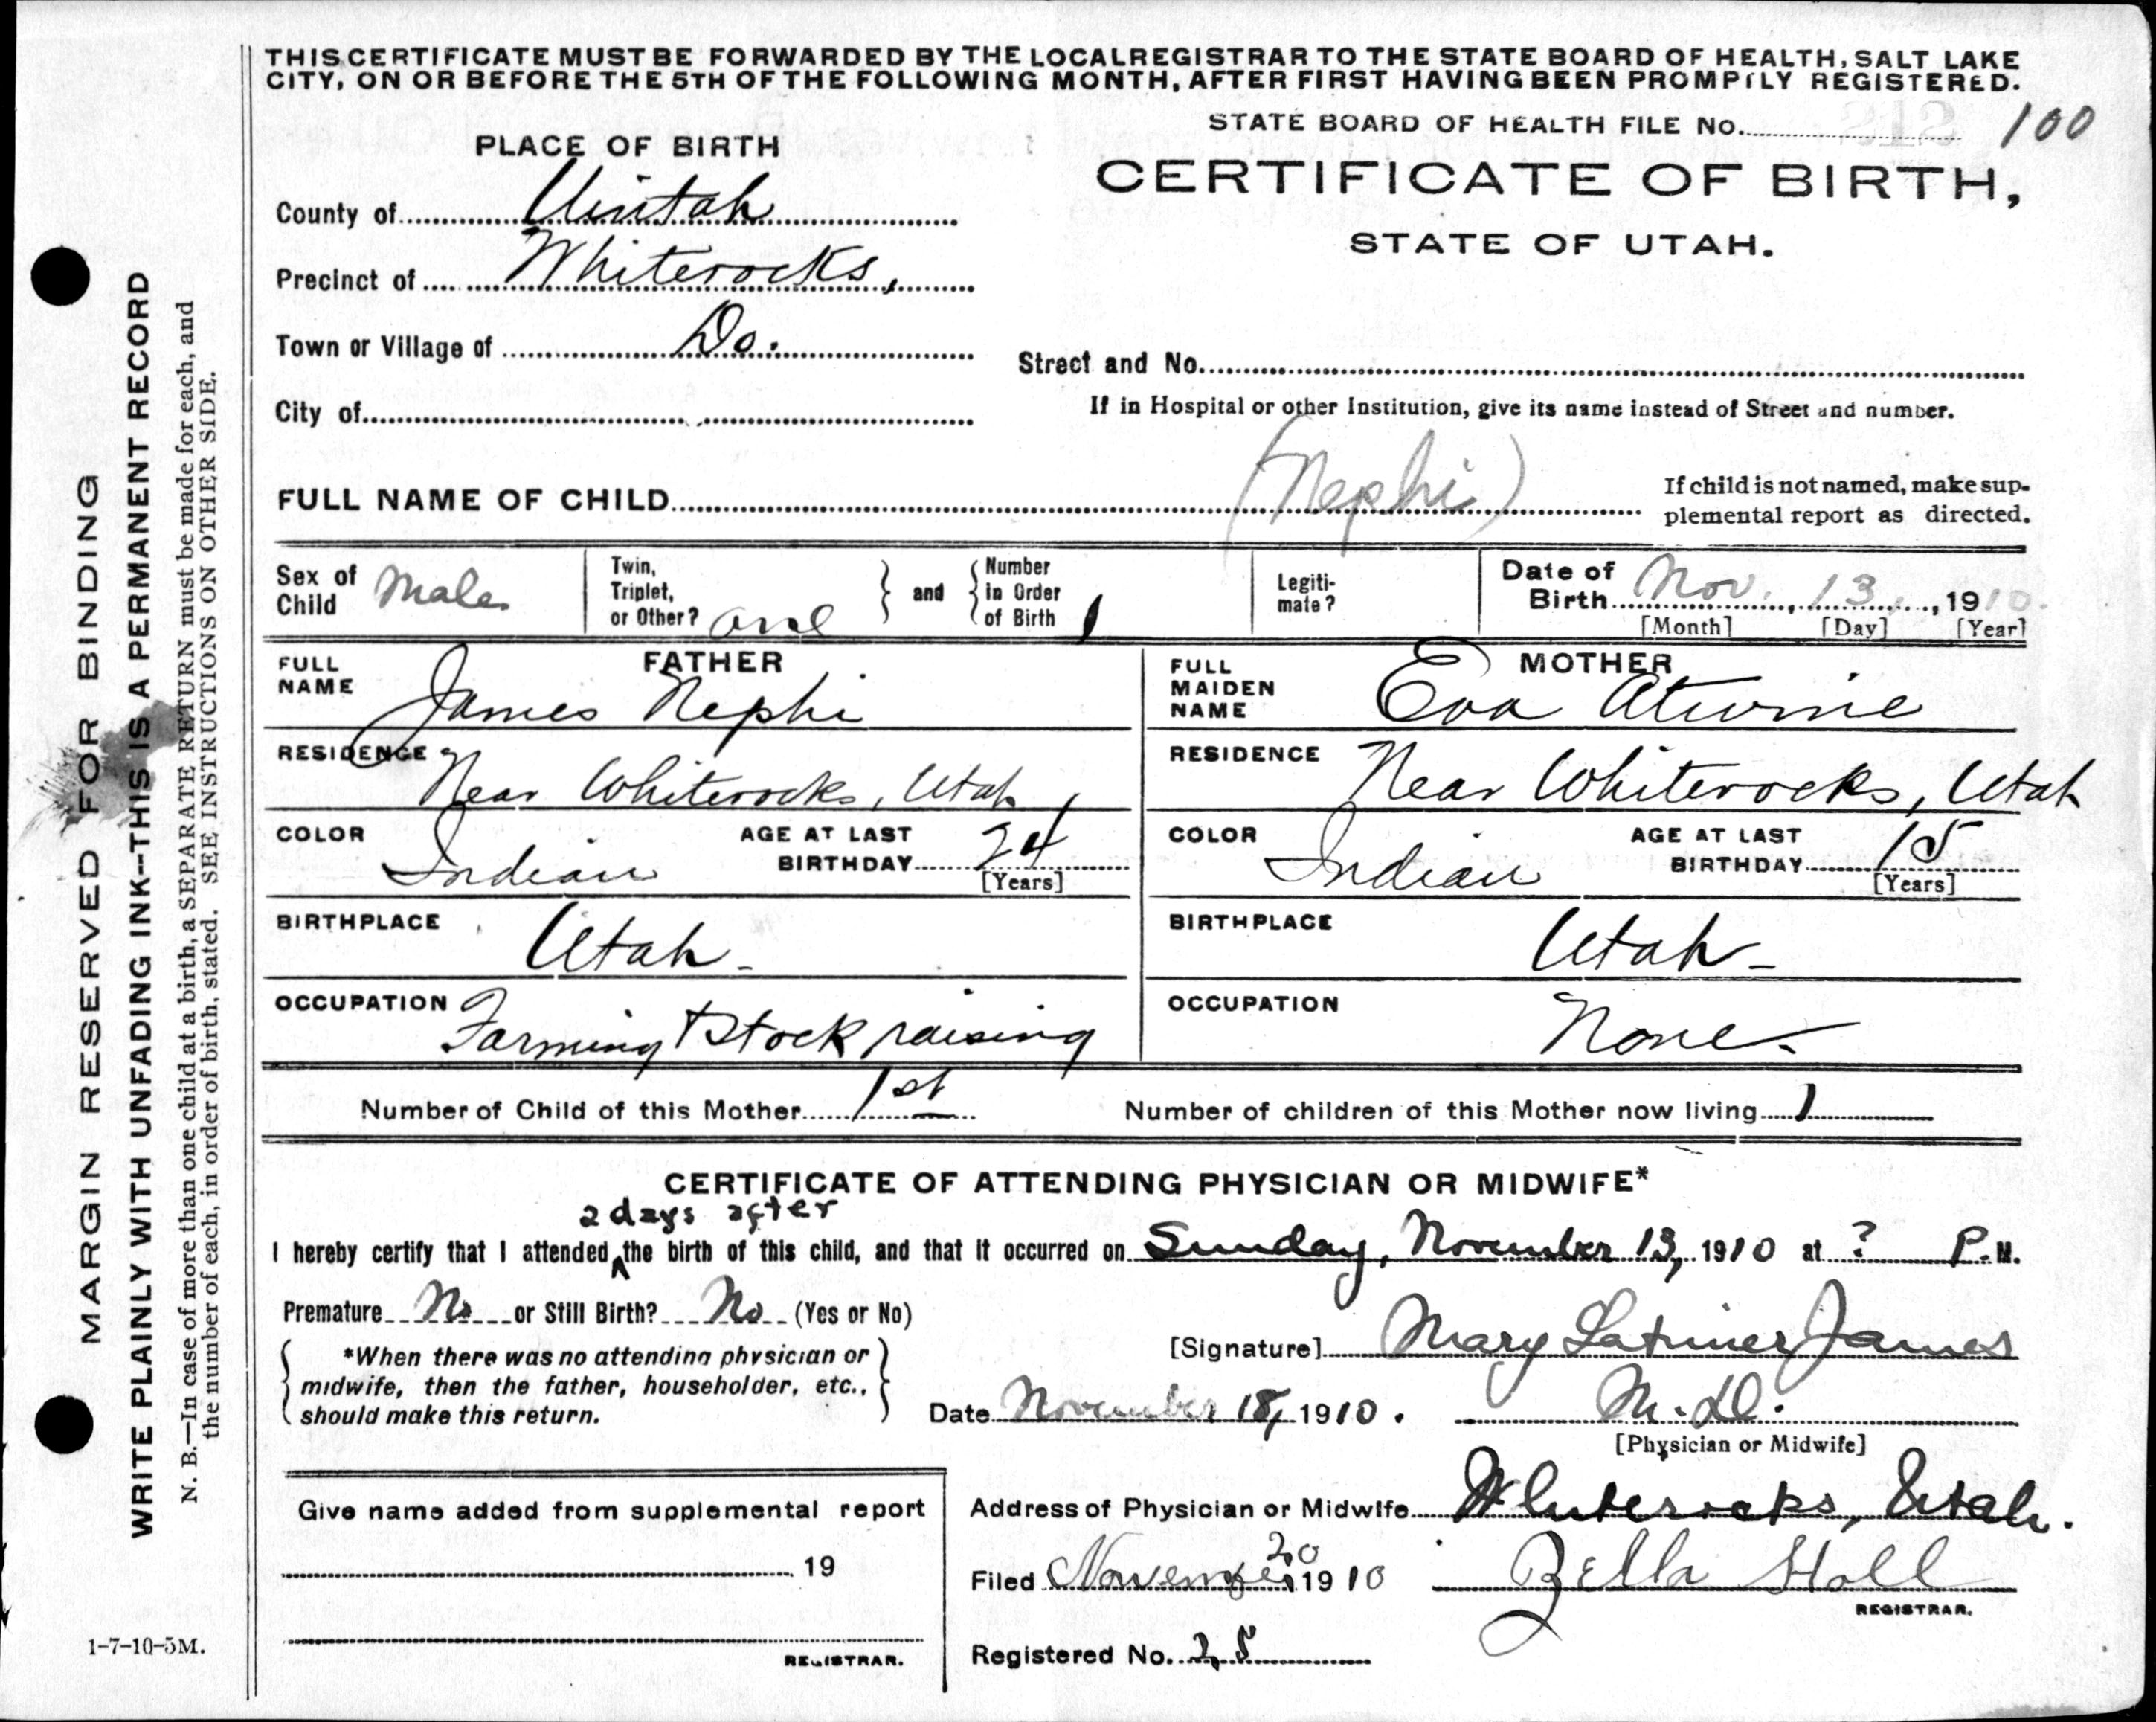 THIS CERTIFICATE MUST BE FORWARDED BY THE LOCAL REGISTRAR TO THE STATE BOARD OF HEALTH, SALT LAKE
CITY, ON OR BEFORE THE 5TH OF THE FOLLOWING MONTH, AFTER FIRST HAVING BEEN PROMPTLY REGISTERED.
STATE BOARD OF HEALTH FILE No. 100
PLACE OF BIRTH
CERTIFICATE OF BIRTH,
STATE OF UTAH.
County of Uintah
Precinct of Whiterocks,
Town or Village of Do.
Street and No.
City of
If in Hospital or other Institution, give its name instead of Street and number.
FULL NAME OF CHILD (Nephi)
If child is not named, make sup-
plemental report as directed.
Sex of Child Male
Twin, Triplet, or Other? one
and
Number in Order of Birth 1
Legiti-
mate?
Date of Birth Nov. 13, 1910.
[Month] [Day] [Year]
FATHER
FULL NAME James Nephi
RESIDENCE Near Whiterocks, Utah
COLOR Indian
AGE AT LAST BIRTHDAY 24
[Years]
BIRTHPLACE Utah -
OCCUPATION Farming & Stock raising
MOTHER
FULL MAIDEN NAME Eva
RESIDENCE Near Whiterocks, Utah
COLOR Indian
AGE AT LAST BIRTHDAY 15
[Years]
BIRTHPLACE Utah -
OCCUPATION None.
Number of Child of this Mother 1st
Number of children of this Mother now living 1
CERTIFICATE OF ATTENDING PHYSICIAN OR MIDWIFE*
2 days after
I hereby certify that I attended ^ the birth of this child, and that it occurred on Sunday, November 13, 1910 at ? P. M.
Premature No or Still Birth? No (Yes or No)
[Signature] Mary Latimer James
*When there was no attending physician or
midwife, then the father, householder, etc.,
should make this return.
Date November 18, 1910.
M. D.
[Physician or Midwife]
Give name added from supplemental report
19
REGISTRAR.
Address of Physician or Midwife Whiterocks, Utah.
Filed November 20 1910
Zella Stoll
REGISTRAR.
Registered No. 25
MARGIN RESERVED FOR BINDING
WRITE PLAINLY WITH UNFADING INK--THIS IS A PERMANENT RECORD
N. B.—In case of more than one child at a birth, a SEPARATE RETURN must be made for each, and
the number of each, in order of birth, stated. SEE INSTRUCTIONS ON OTHER SIDE.
1-7-10-5M.